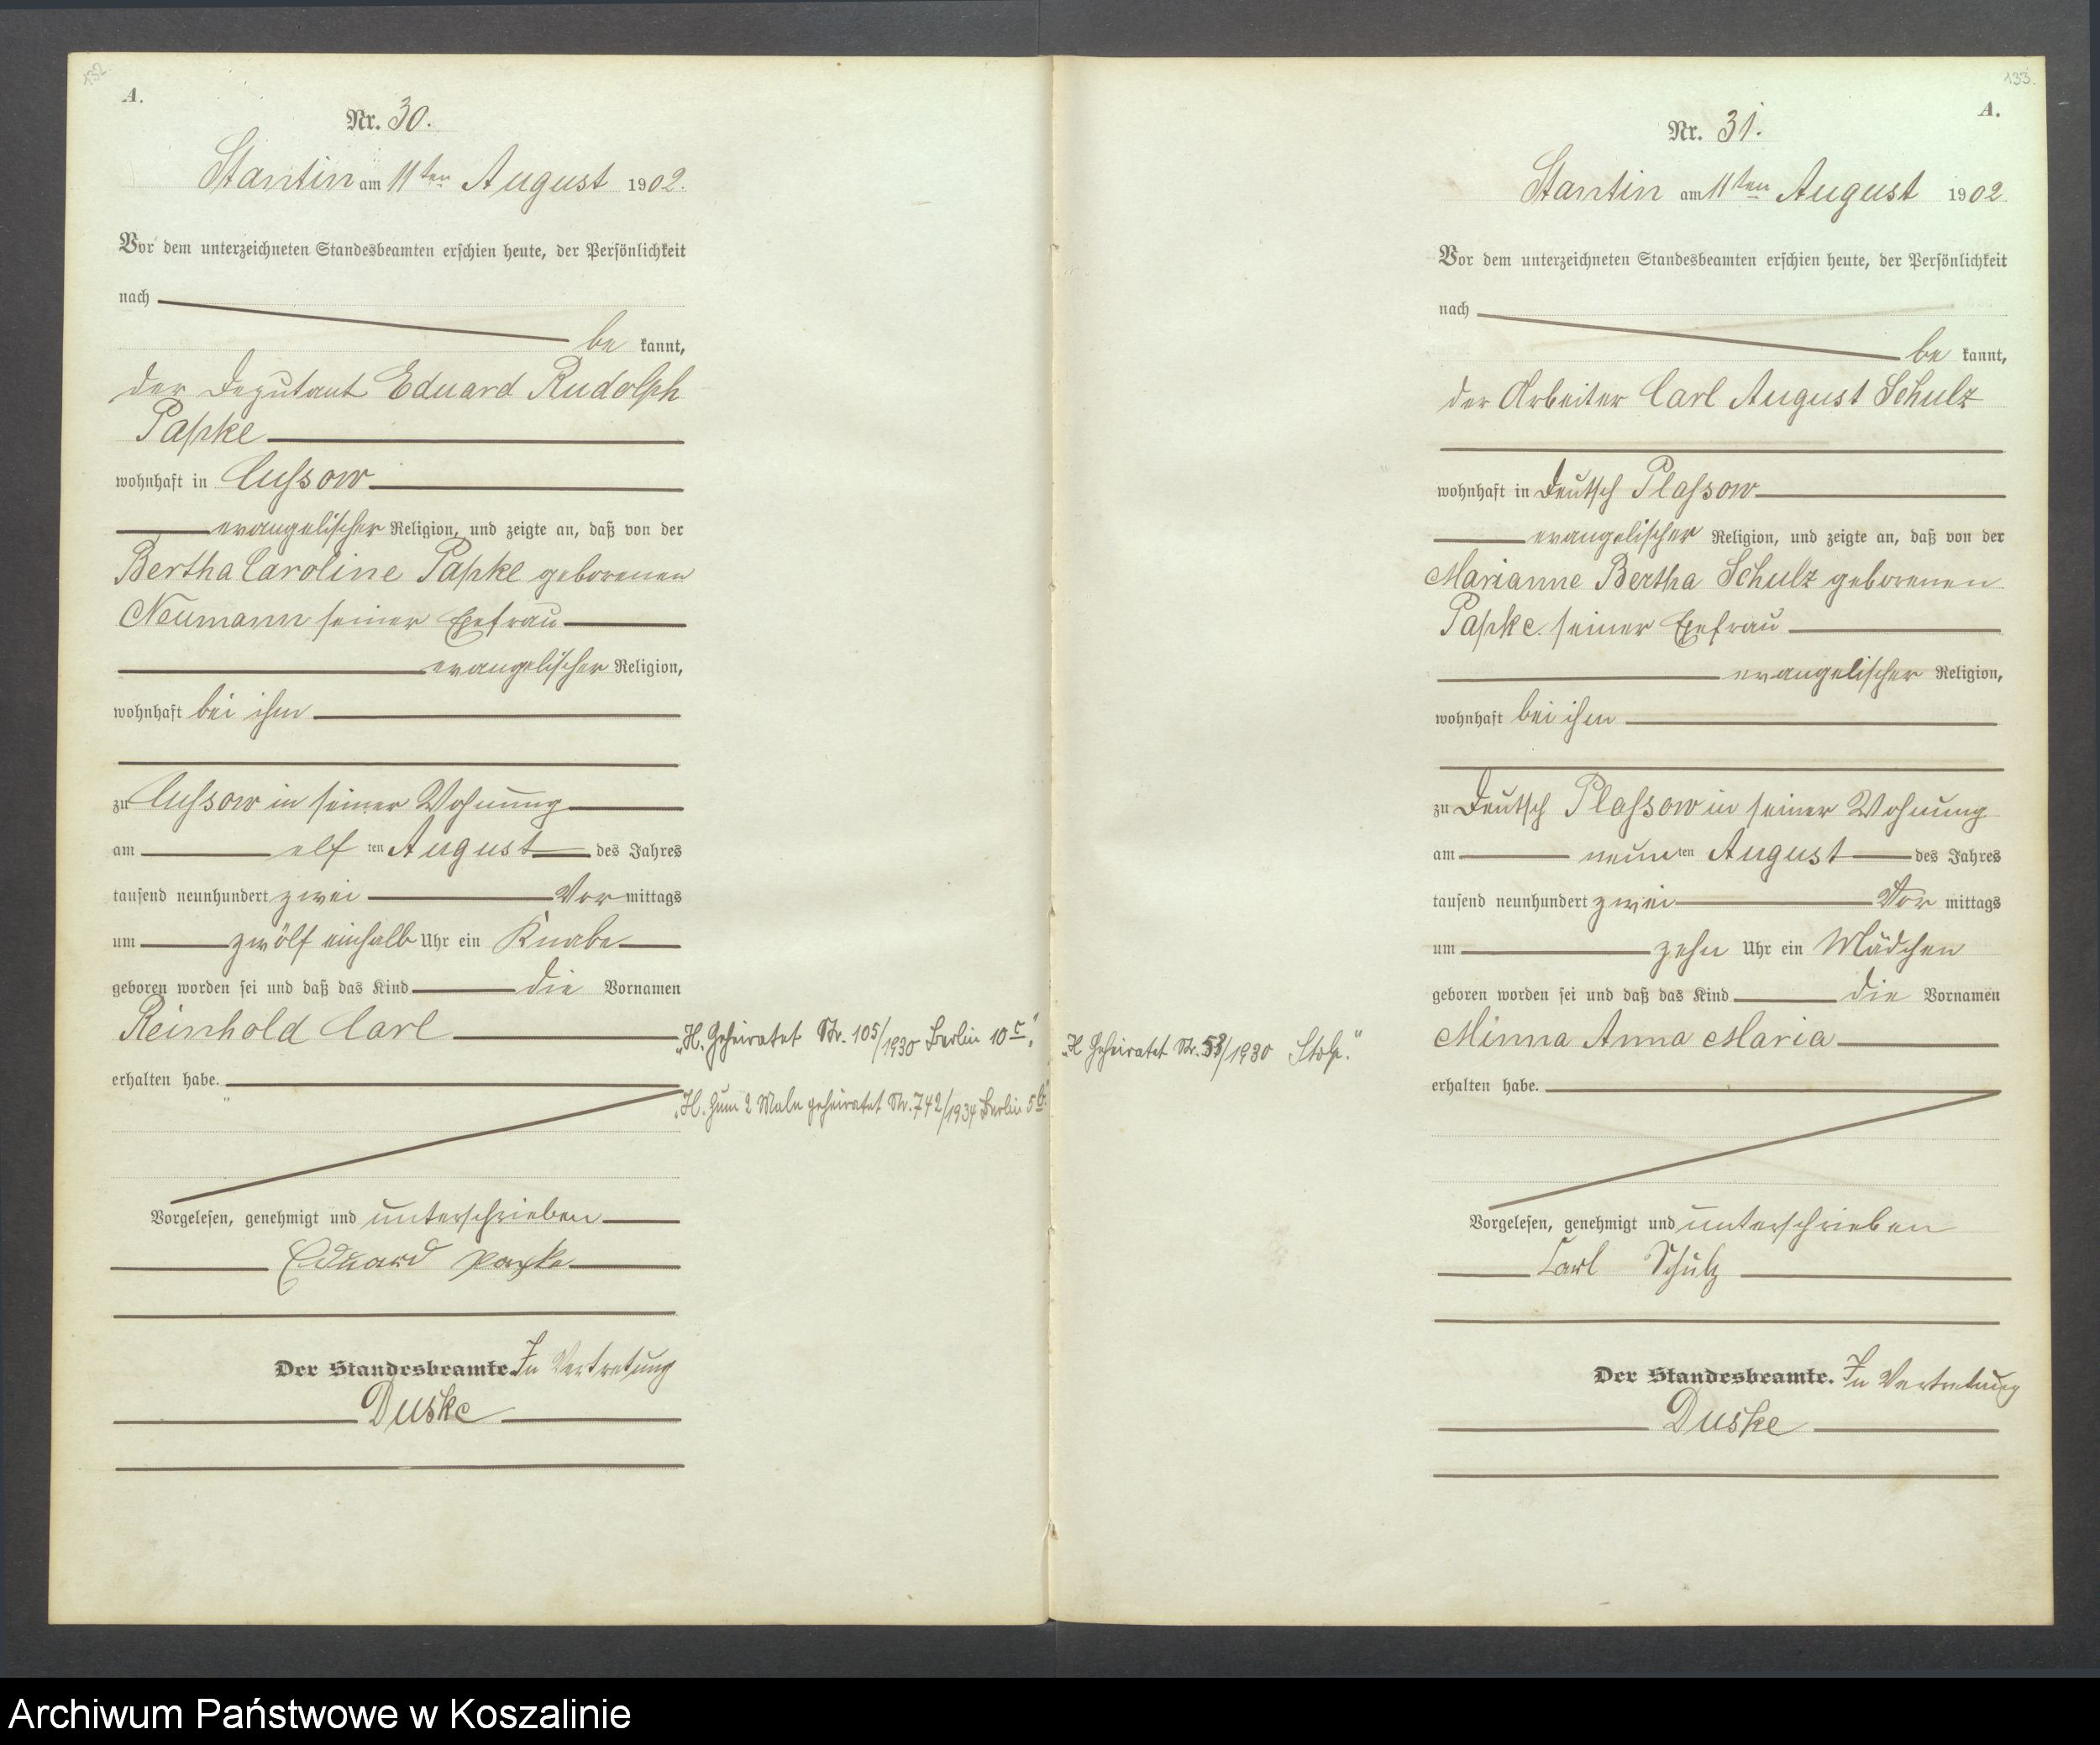 132.
A.
Nr. 30.
Stantin am 11ten August 1902.
Vor dem unterzeichneten Standesbeamten erschien heute, der Persönlichkeit
nach
be kannt,
der Deputant Eduard Rudolph
Papke
wohnhaft in Cussow
evangelischer Religion, und zeigte an, daß von der
Bertha Caroline Papke geborenen
Neumann seiner Ehefrau
evangelischer Religion,
wohnhaft bei ihm
zu Cussow in seiner Wohnung
am elf ten August des Jahres
tausend neunhundert zwei Vor mittags
um zwölf einhalb Uhr ein Knabe
geboren worden sei und daß das Kind die Vornamen
Reinhold Carl
erhalten habe.
„H. Geheiratet Nr. 105/1930 Berlin 10c.“
„H. Zum 2 Male geheiratet Nr. 742/1934 Berlin 5b.“
Vorgelesen, genehmigt und unterschrieben
Eduard Papke
Der Standesbeamte. In Vertretung
Duske
133.
A.
Nr. 31.
Stantin am 11ten August 1902.
Vor dem unterzeichneten Standesbeamten erschien heute, der Persönlichkeit
nach
be kannt,
der Arbeiter Carl August Schulz
wohnhaft in Deutsch Plassow
evangelischer Religion, und zeigte an, daß von der
Marianne Bertha Schulz geborenen
Papke seiner Ehefrau
evangelischer Religion,
wohnhaft bei ihm
zu Deutsch Plassow in seiner Wohnung
am neun ten August des Jahres
tausend neunhundert zwei Vor mittags
um zehn Uhr ein Mädchen
geboren worden sei und daß das Kind die Vornamen
„H Geheiratet Nr. 53/1930 Stolp.“
Minna Anna Maria
erhalten habe.
Vorgelesen, genehmigt und unterschrieben
Carl Schulz
Der Standesbeamte. In Vertretung
Duske
Archiwum Państwowe w Koszalinie